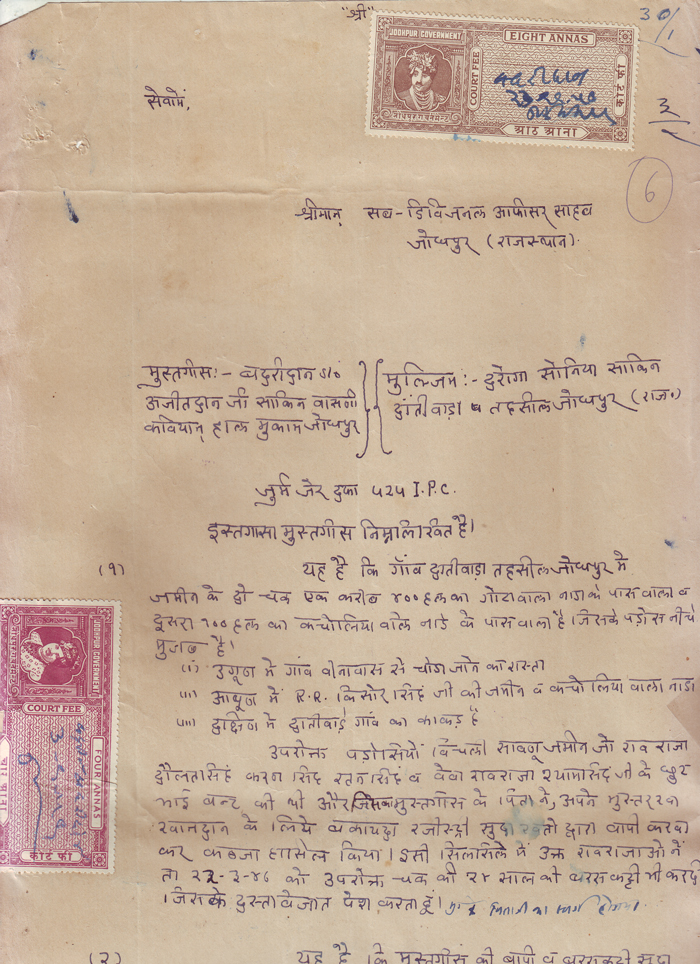 "श्री"
30/1
JODHPUR GOVERNMENT
EIGHT ANNAS
COURT FEE
कोर्ट फी
जोधपुर गवर्नमेन्ट
आठ आना
३
6
सेवामें,
श्रीमान् सब-डिविजनल आफीसर साहब
जोधपुर (राजस्थान).
मुस्तगीस:- बदरीदान s/o
अजीतदान जी साकिन वासणी
कवियान् हाल मुकाम जोधपुर
मुल्जिम:- दुरोगा सोनिया साकिन
दांतीवाड़ा व तहसील जोधपुर (राज॰)
जुर्म जेर दफा ५२५ I.P.C.
इस्तगासा मुस्तगीस निम्नलिखित है।
(१) यह है कि गाँव दांतीवाडा तहसील जोधपुर में
जमीन के दो चक एक करीब ४००हल का गोटावाला नाडा के पास वाला व
दूसरा २००हल का कचोलिया वाले नाडे के पास वाला है। जिसके पड़ोस नीचे
मुजब है।
(i) उगूण में गांव बीनावास से जाने का रास्ता
(ii) आथूण में R.R. किसोर सिंह जी की जमीन व कचोलिया वाला नाडा
(iii) दक्षिण में दांतीवाड़े गाँव का कांकड़ है
उपरोक्त पड़ोसियों बिचली सावणू जमीन जो राव राजा
दौलतसिंह करण सिंह रतन सिंह व बेवा रावराजा श्यामसिंह जी के
भाई बन्ट की थी और जिसका मुस्तगीस के पिता ने, अपने मुस्तरका
खानदान के लिये बकायदा रजीस्ट्री सुदा खतो द्वारा बापी करवा
कर कब्जा हासिल किया। इसी सिलसिले में उक्त रावराजाओं नें
ता २२-२-४६ को उपरोक्त चक की २४ साल की बरसकट्टी भी करदी
जिसके दस्तावेजात पेश करता हूं।
JODHPUR GOVERNMENT
COURT FEE
FOUR ANNAS
चार आना
कोर्ट फी
(२) यह है कि मुस्तगीस की बापी व बरसकटी सुदा